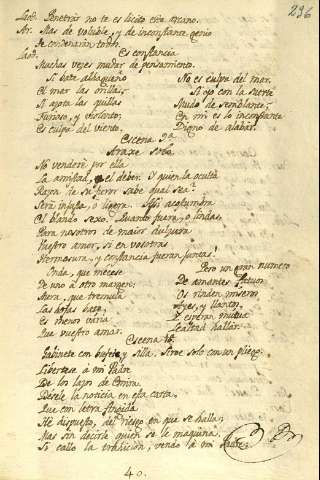 236
Laod. Penetrar no te es licito este arcano.
Ar. Mas de voluble, y de inconstante genio
Te condenarán todos.
Laod. Es constancia
Muchas veces mudar de pensamiento.
Si bate alhagueño
El mar las orillas,
Si azota las quillas
Furioso, y violento,
Es culpa del viento,
No es culpa del mar.
Si yo con la suerte
Mudo de semblante,
En mi es lo inconstante
Digno de alabar.
Escena 9ª
Araxe solo
No venderé por ella
La amistad, el deber. Y quien la oculta
Razon de su error sabe qual sea?
Será injusta, o ligera. Assi acostumbra
El blando sexo. Quanto fuera, o lindas,
Para nosotros de maior dulzura
Vuestro amor, si en vosotras
Hermosura, y constancia fueran juntas!
Onda, que mecese
De uno à otro margen;
Aera, que tremula
Las hojas bate,
Es menos varia
Que vuestro amor.
Pero un gran numero
De amantes
Os rinden miseros
Ayes, y llantos,
Y esperan mutua
Lealtad hallar.
Escena
Gabinete con bufete, y silla. solo con un pliego.
Libertese à mi Padre
De los lazos de
Désele la noticia en esta carta,
Que con letra fingida
He dispuesto, del riesgo en que se halla;
Mas sin decirle quien se le maquina.
Si callo la trahicion, vendo à mi Padre;
40.